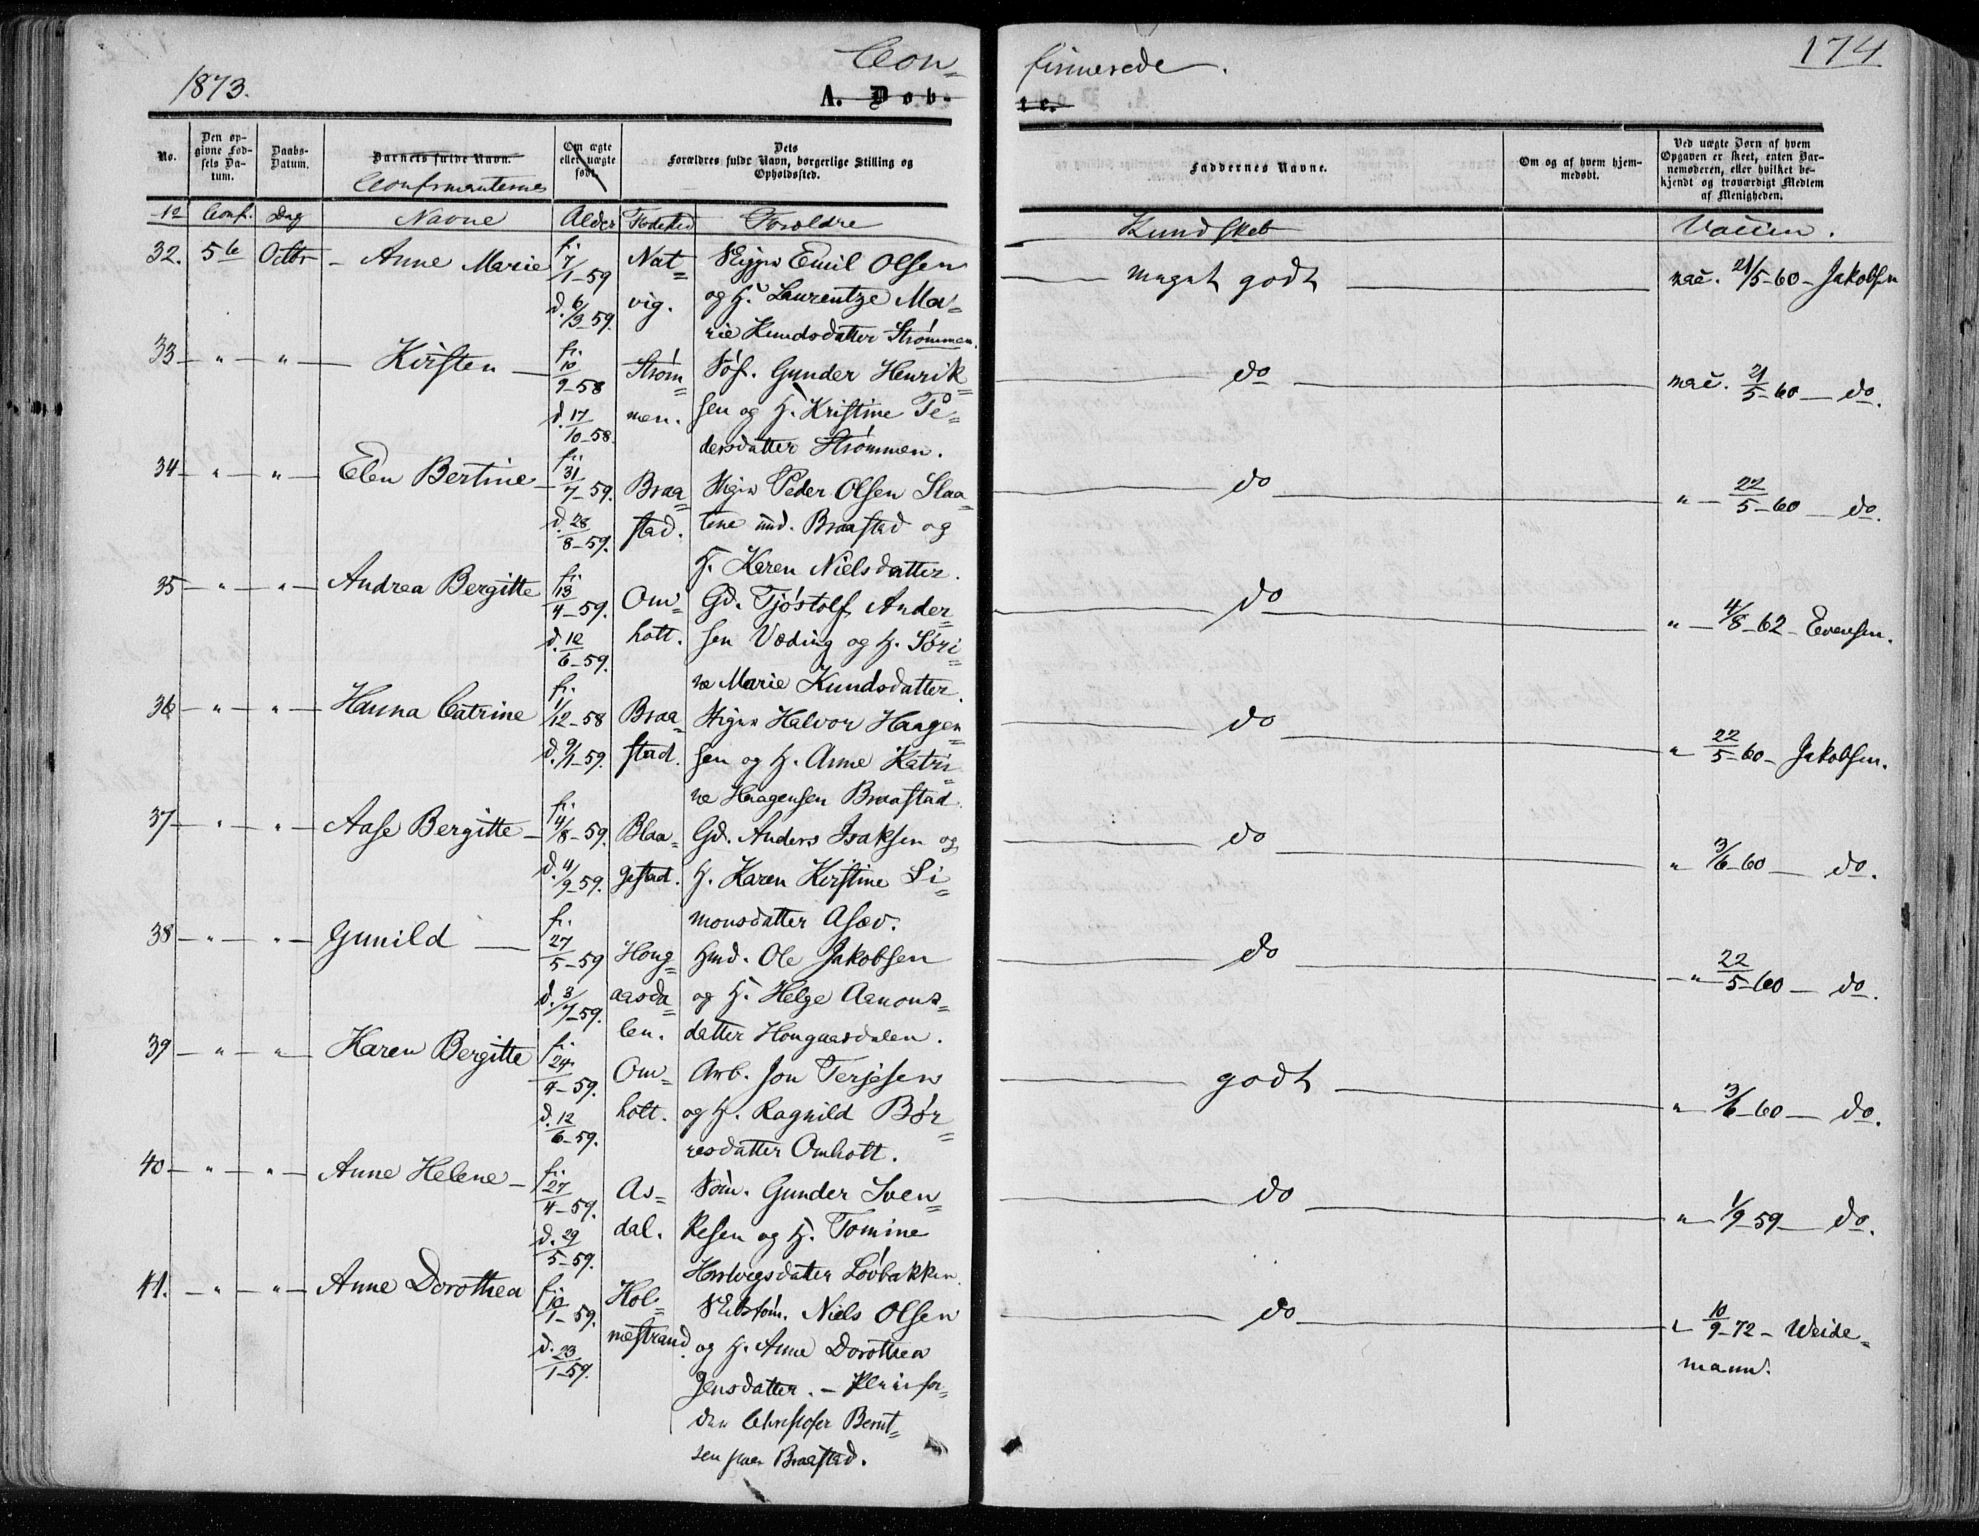 1873.
Con-
firmerede.
174
A. Døb-
te.
No.
Den op-
givne Fød-
sels Da-
tum.
Daabs-
Datum.
Barnets fulde Navn.
Confirmanternes
Om ægte
eller uægte
født.
Dets
Forældres fulde Navn, borgerlige Stilling og
Opholdssted.
Faddernes Navne.
Om og af hvem hjem-
medøbt.
Ved uægte Børn af hvem
Opgaven er skeet, enten Bar-
nemoderen, eller hvilket be-
kjendt og troværdigt Medlem
af Menigheden.
Conf. Dag Navne Alder Fødested Forældre Kundskab Vaccin.
32. 5te Octbr - Anne Marie f. 7/1-59 Nat= Emil Olsen meget godt vac. 21/5-60 - Jakobsen
d. 6/3-59. vig. og H. Laurentze Ma=
rie Knudsdatter Strømmen.
33 - " - " - Kirsten f. 10/9-58 Strøm= Gunder Henrik= do vac. 21/5-60 - do.
d. 17/10-58. men. sen og H. Kristine Pe=
dersdatter Strømmen.
34 - " - " - Elen Bertine f. 31/7-59. Braa= Peder Olsen Slaa= do " - 22/5-60 - do.
d. 28/8-59. stad. tene und. Braastad og
H. Karen Nielsdatter.
35 - " - " - Andrea Bergitte f. 13/4-59. Om= Gd. Tjøstolf Ander= do " - 4/8-62 - Evensen.
d. 12/6-59. holt. sen Væding og H. Søri=
ne Marie Knudsdatter.
36 - " - " - Hanna Catrine f. 1/12-58 Braa= Halvor Haagen= do " 22/5-60 - Jakobsen.
d. 9/1-59. stad. sen og H. Anne Katri=
ne Haagensen Braastad.
37 - " - " - Aase Bergitte - f. 4/8-59. Blaa= Gd. Anders Isaksen og do " 3/6-60 - do.
d. 4/9-59. gestad. H. Karen Kirstine Si=
monsdatter Asæv.
38 - " - " - Gunild f. 27/5-59 Houg= Hmd. Ole Jakobsen do " 22/5-60 - do.
d. 3/7-59. aasda= og H. Helge Aanons=
len. datter Hougaasdalen.
39 - " - " - Karen Bergitte f. 24/4-59. Om= Arb. Jon Terjesen godt " 3/6-60 - do.
d. 12/6-59. holt. og H. Ragnild Bør=
resdatter Omholt.
40 - " - " - Anne Helene - f. 27/4-59. As= Søm. Gunder Sven= do " 1/9-59 - do.
d. 29/5-59. dal. kesen og H. Tomine
Løvbakken.
41. - " - " - Anne Dorothea f. 10/1-59. Hol= Niels Olsen do " 10/9-72 - Weide=
d. 23/1-59. mestrand. og H. Anne Dorothea mann.
Jensdatter. - Pleiefor=
dre Christofer Bernt=
sen paa Braastad.